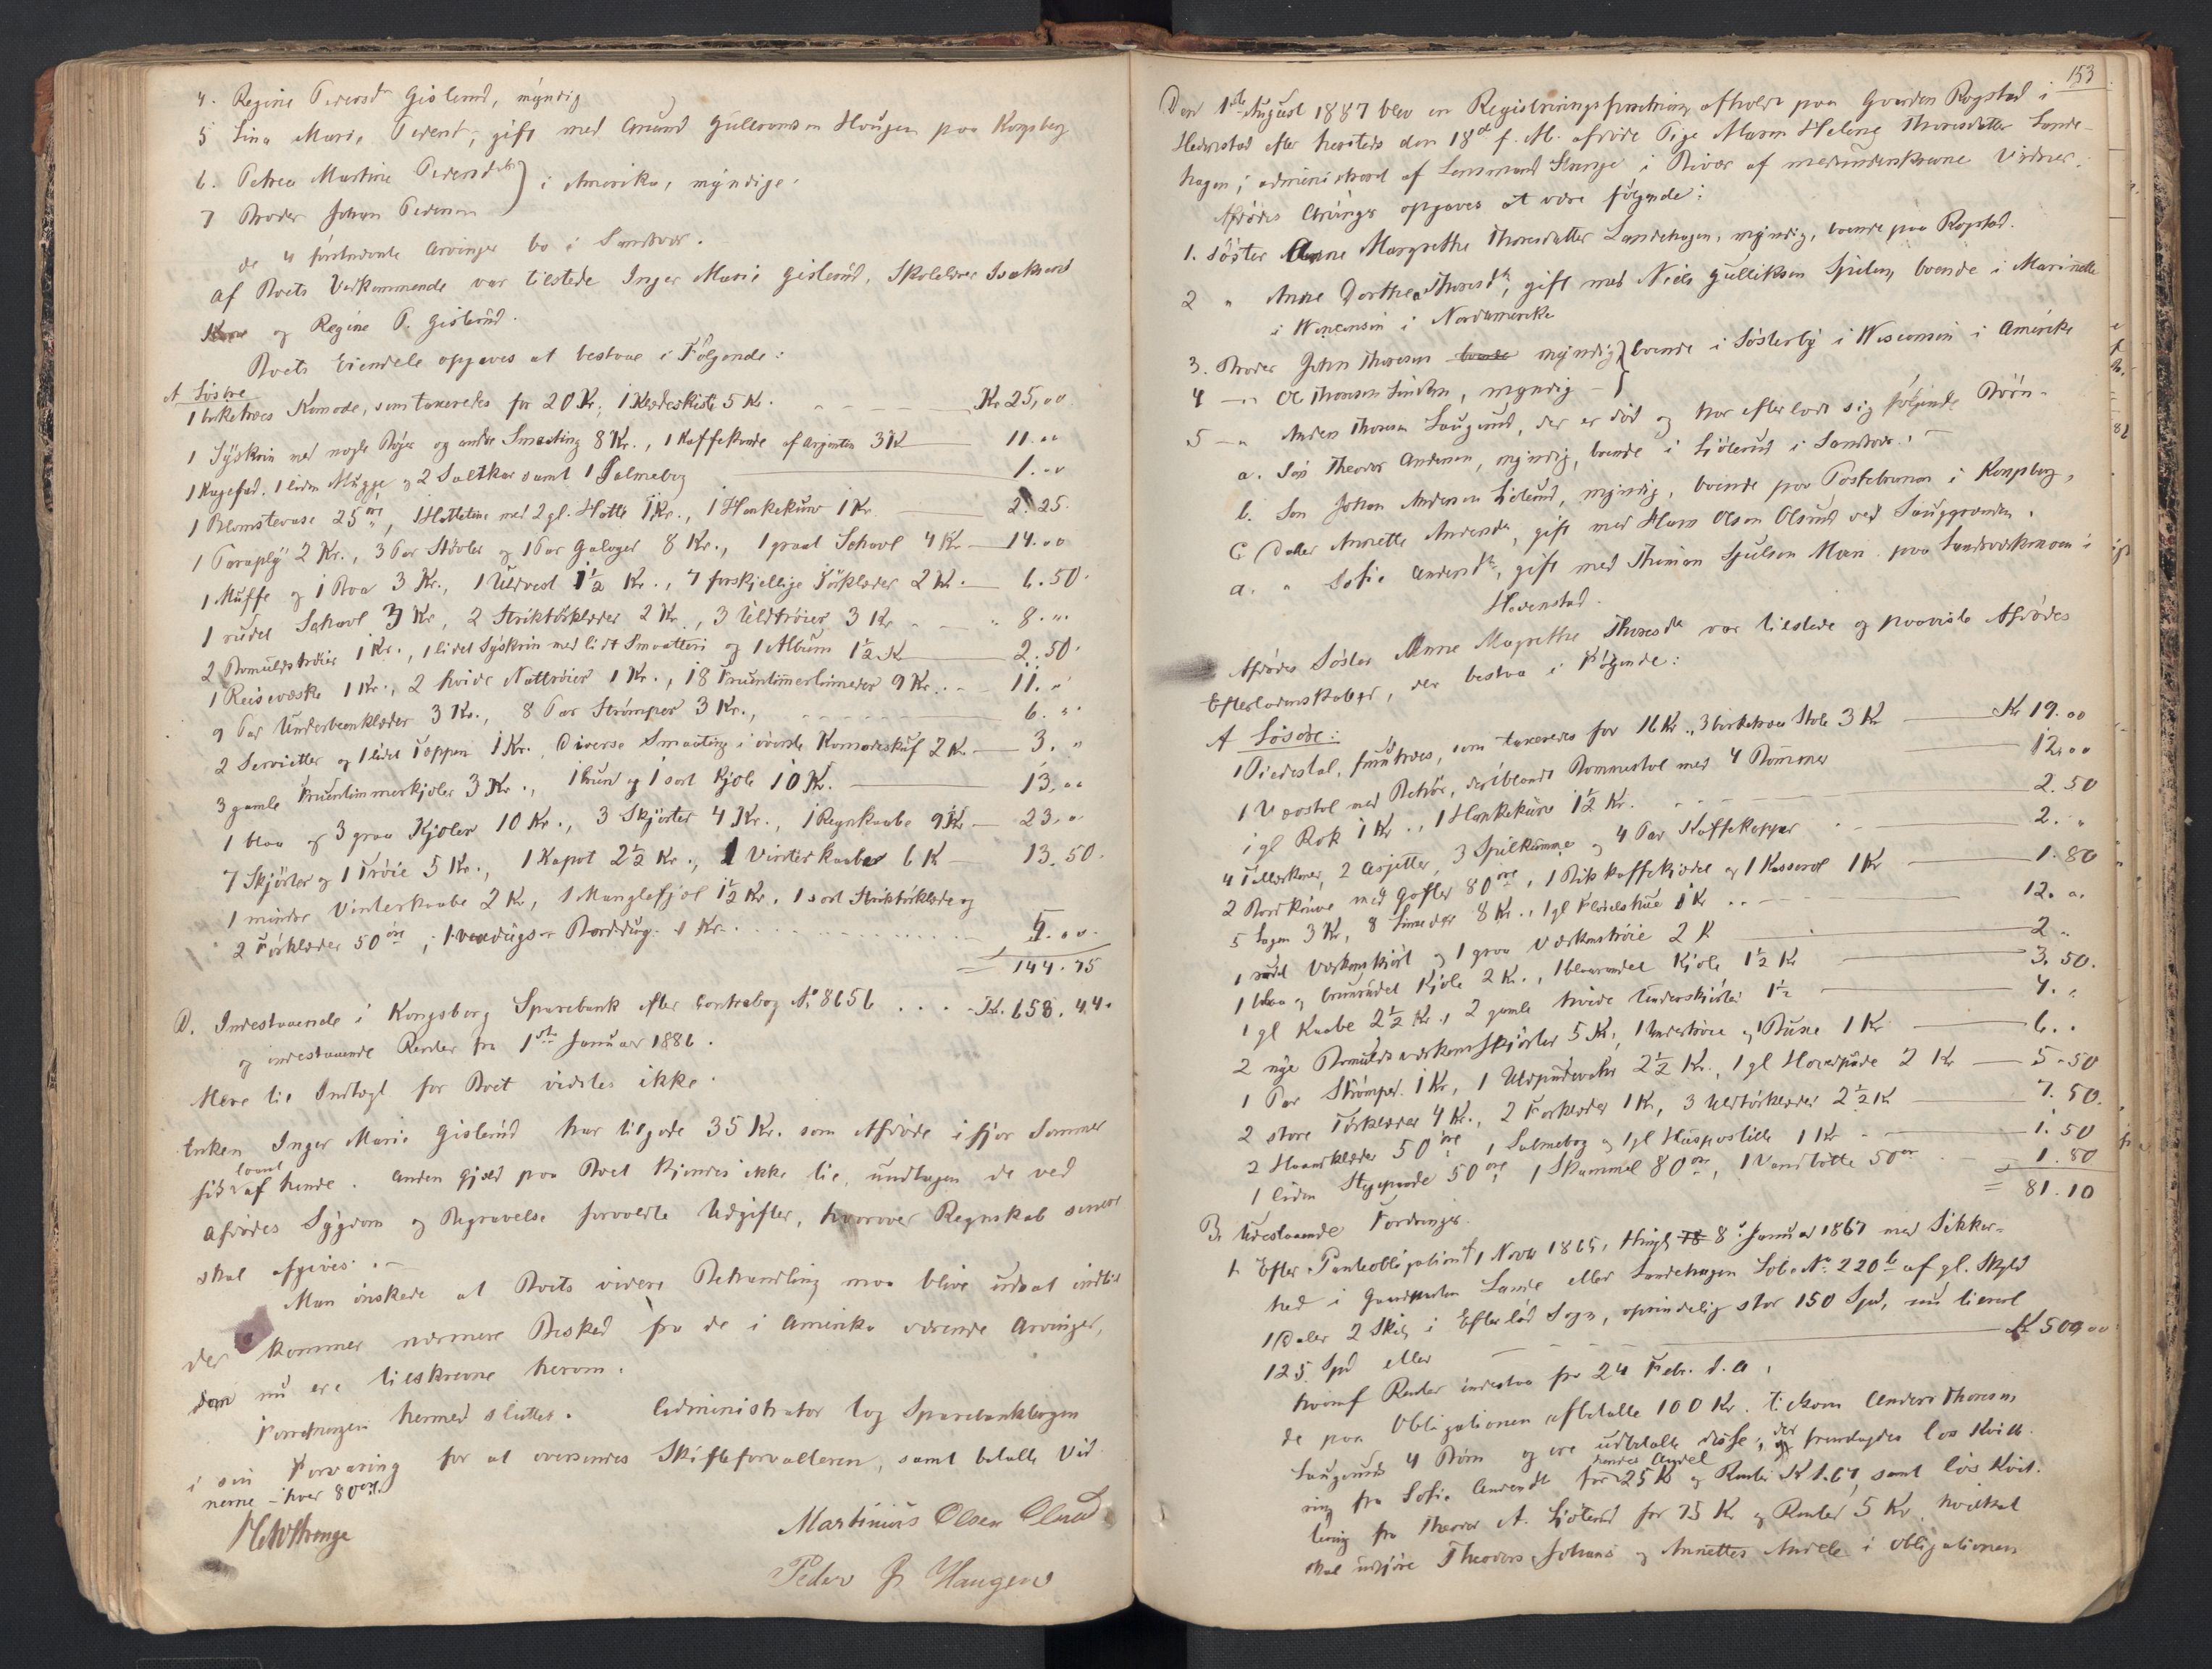 4. Regine Pedersd Gislerud, myndig
5 Lina Marie Pedersd, gift med Amund Gulbrandsen Haugen paa Kongsberg
6. Petrea Martine Pedersdtr } i Amerika, myndige.
7 Broder Johan Pedersen
de 4 førstnævnte Arvinger bo i Sandsvær.
Af Boets Vedkommende var tilstede Inger Marie Gislerud, Skolelærer
og Regine P. Gislerud.
Boets Eiendele opgaves at bestaa i Følgende:
A Løsøre
1 birketræes Komode, som taxeredes for 20 Kr., 1 Klædeskiste 5 Kr. Kr 25,00
1 Syskrin med nogle Bøger og andre Smaating 8 Kr., 1 Kaffekande af Argentin 3 K 11.00
1 Kagefad. 1 liden Mugge og 2 Saltkar samt 1 Psalmebog 1.00
1 Blomstervase 25 øre, 1 Hatteine med 2 gl. Hatte 1 Kr., 1 Hankekurv 1 Kr 2.25.
1 Paraply 2 Kr., 3 Par Støvler og 1 Par Galoger 8 Kr., 1 graat Schavl 4 Kr 14.00
1 Muffe og 1 Boa 3 Kr., 1 Uldvest 1½ Kr., 7 forskjellige Tørklæder 2 Kr. 6.50.
1 rudet Schavl 3 Kr, 2 Striktørklæder 2 Kr, 3 Uldtrøier 3 Kr 8.""
2 Bomuldstrøier 1 Kr., 1 lidet Syskrin med lidt Smaatteri og 1 Album 1½ K 2.50.
1 Reisevæske 1 Kr., 2 hvide Nattrøier 1 Kr., 18 Fruentimmerlinneder 9 Kr. 11. "
9 Par Underbenklæder 3 Kr., 8 Par Strømper 3 Kr., 6. "
2 Servietter og 1 lidet Teppen 1 Kr. Diverse Smaating i øverste Komodeskuf 2 K. 3. "
3 gamle Fruentimmerkjoler 3 Kr., 1 brun og 1 sort Kjole 10 Kr. 13.00
1 blaa og 3 graa Kjoler 10 Kr., 3 Skjørter 4 Kr., 1 Regnkaabe 9 Kr 23.0
7 Skjørter og 1 Trøie 5 Kr., 1 Kapot 2½ Kr., 1 Vinterkaabe 6 K 13.50.
1 mindre Vinterkaabe 2 Kr, 1 Manglefjøl 1½ Kr. 1 sort Striktørklæde og
2 Forklæder 50 øre, 1 Borddug 1 Kr. 5.00.
= 144.75
B. Indestaaende i Kongsberg Sparebank efter Contrabog No 8656 Kr. 658.44.
og indestaaende Renter fra 1ste Januar 1886.
Mere til Indtægt for Boet vidstes ikke.
Enken Inger Marie Gislerud har tilgode 35 Kr. som Afdøde i fjor Sommer
fik laant af hende. Anden Gjæld paa Boet kjendes ikke til, undtagen de ved
Afdødes Sygdom og Begravelse forvoldte Udgifter, hvorover Regnskab senere
skal afgives.
Man ønskede at Boets videre Behandling maa blive udsat indtil
der kommer nærmere Besked fra de i Amerika værende Arvinger,
som nu ere tilskrevne herom.
Forretningen hermed sluttet. Administrator tog Sparebankbogen
i sin Forvaring for at oversendes Skifteforvalteren, samt betalte Vid
nerne hver 80 øre.
Martinius Olsen Olsrud
Peder P. Haugen
153
Den 1ste August 1887 blev en Registreringsforretning afholdt paa Gaarden Rogstad i
Hedenstad efter hersteds den 18de f. M. afdøde Pige Maren Helene Thoresdatter Lande-
hagen, administreret af Lensmand Strenge i Bivær af medunderskrevne Vidner.
Afdødes Arvinger opgaves at være følgende:
1. Søster Anne Margrethe Thoresdatter Landehagen, myndig, boende paa Rogstad.
2 " Anne Dorthea Thoresdt, gift med Niels Gulliksen boende i Marinette
i Wisconsin i Nordamerika
3. Broder John Thoresen myndig } boende i Søsterby i Wisconsin i Amerika
4 " Ole Thoresen, myndig
5 " Anders Thoresen Laugerud, der er død og har efterladt sig følgende Børn.
a. Søn Theodor Andersen, myndig, boende i Gjølerud i Sandsvær.
b. Søn Johan Andersen Gjølerud, myndig, boende paa i Kongsberg,
c. Datter Annette Andersdt, gift med Hans Olsen Olsrud ved
d. " Sofie Andersdt, gift med paa i
Hedenstad.
Afdødes Søster Anne Magrethe Thoresdt var tilstede og paaviste Afdødes
Efterladenskaber, der bestaa i Følgende:
A Løsøre:
1 Piedestal, furutræes, som taxeredes for 16 Kr., 3 birketræes Stole 3 Kr Kr 19.00
1 Vævstol med Behør, deriblandt Bommestol med 4 Bommer 12,00
1 gl Rok 1 Kr., 1 Hankekurv 1½ Kr. 2.50
4 Tallerkener, 2 Asjetter, 3 Spilkumme og 4 Par Kaffekopper 2. "
2 Bordknive med Gafler 80 øre, 1 Blik kaffekjedel og 1 Kasserol 1 Kr 1.80
5 Lagen 3 Kr, 8 Linneder 8 Kr., 1 gl Fløielshue 1 Kr 12. "
1 rødt Værkenskjørt og 1 graa Værkenstrøie 2 K 2 "
1 blaa og brunrudet Kjole 2 Kr., 1 blaarandet Kjole 1½ Kr 3.50.
1 gl Kaabe 2½ Kr., 2 gamle hvide Underskjørter 1½ 4. "
2 nye Bomulds værkensskjørter 5 Kr, 1 Undertrøie og 1 Buxe 1 Kr 6. "
1 Par Strømper 1 Kr, 1 2½ Kr, 1 gl Hovedpude 2 Kr 5.50
2 store Tørklæder 4 Kr., 2 Forklæder 1 Kr, 3 Uldtørklæder 2½ K 7.50.
2 Haandklæder 50 øre, 1 Salmebog og 1 gl Huspostille 1 Kr 1.50
1 liden Stegepande 50 øre, 1 Skammel 80 øre, 1 Vandbøtte 50 øre 1.80
= 81.10
B. Udestaaende Fordringer.
1. Efter Panteobligation af 1 Novbr 1865, thingl 8de Januar 1867 med Sikker-
hed i Gaardparten Lande eller Landehagen Løbe No 220b af gl. Skyld
1 Daler 2 Skil i Efterløt Sogn, oprindelig stor 150 Spd, nu til rest
125 Spd eller K 500.00
hvoraf Renter indestaa fra 24 Febr. d. A.
de paa Obligationen afbetalte 100 Kr. tilkom Anders Thoresens
Laugeruds 4 Børn og ere udbetalte disse, der fremlagdes løs Kvitte-
ring fra Sofie Andersdt for hendes Andel 25 Kr og Renter K 1.67, samt løs Kvit-
tering fra Theodor A. Gjølerud for 75 Kr og Renter 5 Kr, hvilket
skal udgjøre Theodors, Johans og Annettes Andele i Obligationen